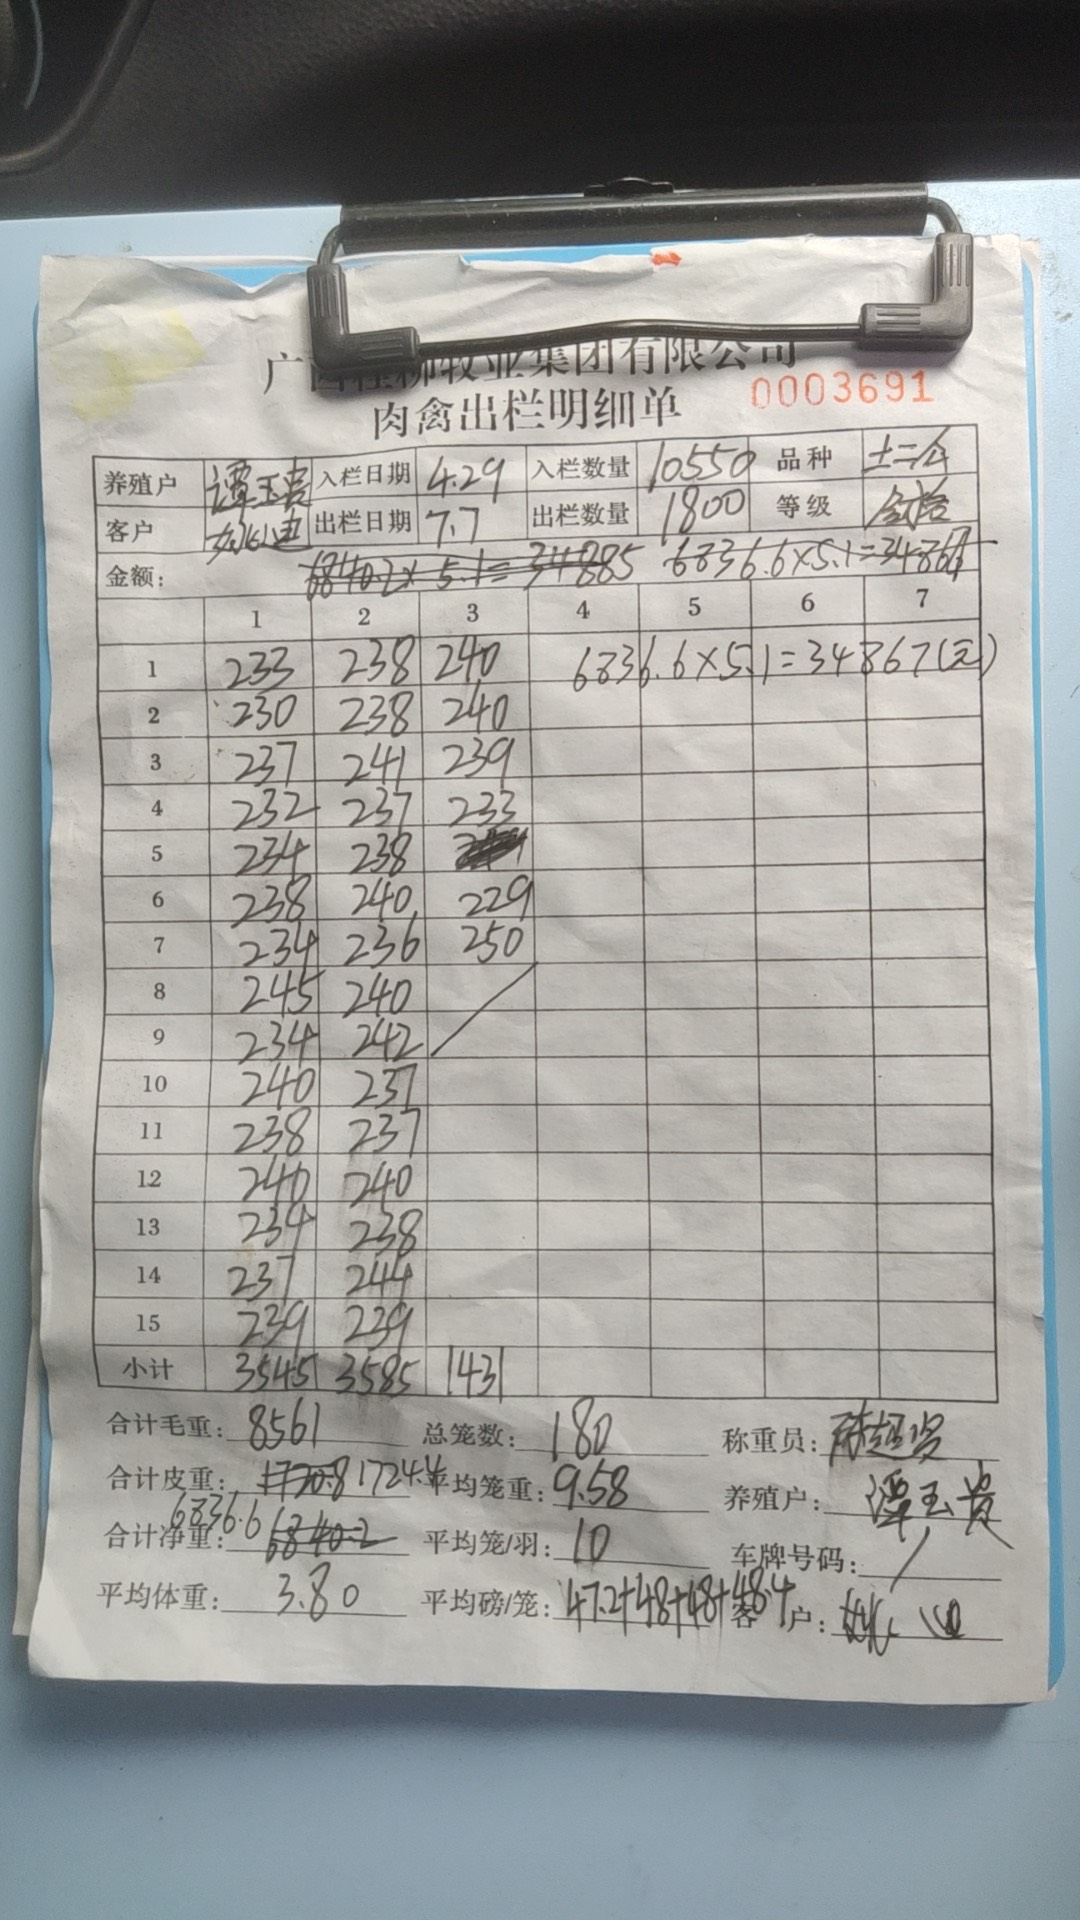 广西桂柳牧业集团有限公司
肉禽出栏明细单 0003691
养殖户 谭玉贵 入栏日期 4.29 入栏数量 10550 品种 土二公
客户 出栏日期 7.7 出栏数量 1800 等级 合格
金额: 6840.2×5.1=34885 6836.6×5.1=34867
1 2 3 4 5 6 7
1 233 238 240 6836.6×5.1=34867(元)
2 230 238 240
3 237 241 239
4 232 237 233
5 234 238
6 238 240 229
7 234 236 250
8 245 240
9 234 242
10 240 237
11 238 237
12 240 240
13 234 238
14 237 244
15 239 239
小计 3545 3585 1431
合计毛重: 8561 总笼数: 180 称重员:
合计皮重: 1720.8 1724.4 平均笼重: 9.58 养殖户: 谭玉贵
合计净重: 6836.6 6840.2 平均笼/羽: 10 车牌号码: /
平均体重: 3.80 平均磅/笼: 47.2+48+48+48.4 客户: